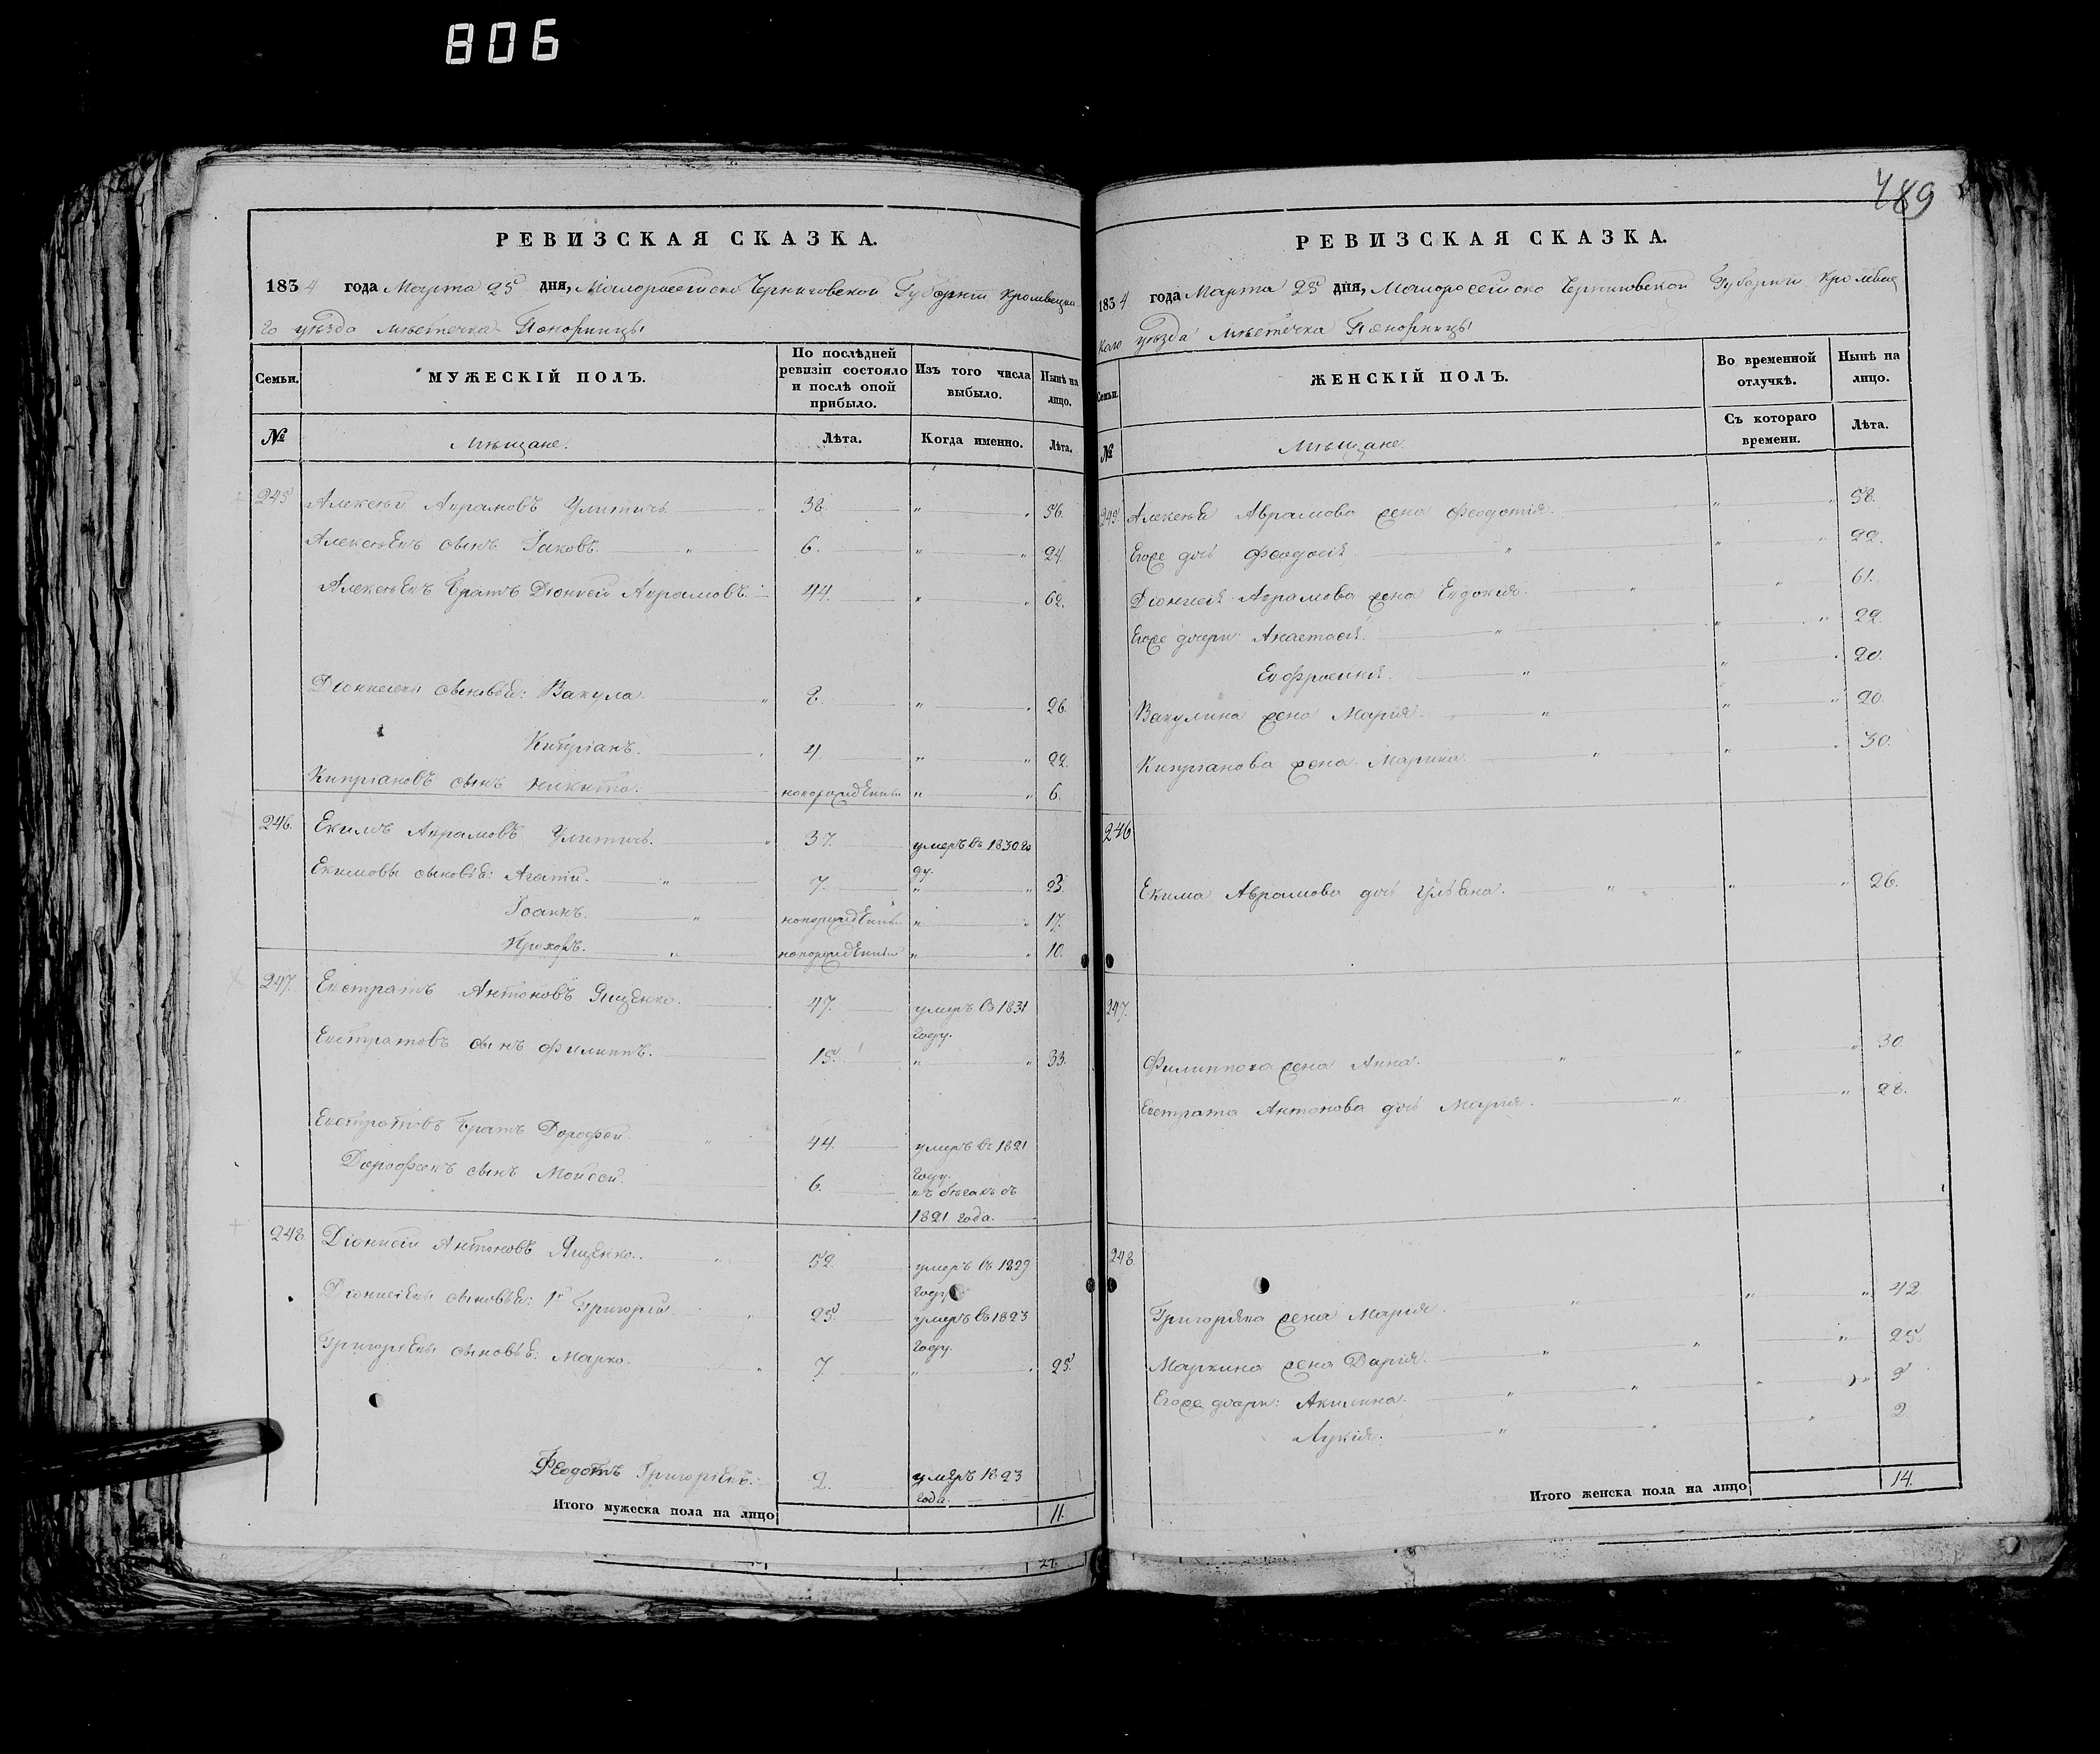 806
489
РЕВИЗСКАЯ СКАЗКА.
1834 года Марта 25 дня, Малороссійско Черниговской Губерніи Кролевецка
го уѣзда мѣстечка Понорницы
Семьи. МУЖЕСКІЙ ПОЛЪ. По послѣдней ревизіи состояло и послѣ оной прибыло. Изъ того числа выбыло. Нынѣ на лицо.
№ Мѣщане. Лѣта. Когда именно. Лѣта.
245 Алексѣй Аврамовъ Улитичь 38. " " 56.
Алексѣевъ сынъ Іаковъ. " 6. " " 24.
Алексѣевъ братъ Діонисій Аврамовъ. 44. " " 62.
Діонисіевы сыновья: Вакула. " 8. " " 26.
Кипріанъ. 4. " " 22.
Кипріановъ сынъ Никита. новорожденный " " 6.
246. Екимъ Аврамовъ Улитичь. " 37. умеръ въ 1830 го
ду.
Екимовы сыновья: Агатій. " 7. " " 23.
Іоаннъ. " новорожденный " " 17.
Прохоръ. " новорожденный " " 10.
247. Евстратъ Антоновъ Ященко. 47. умеръ въ 1831
году.
Евстратовъ сынъ Филиппъ. 15. " " 33.
Евстратовъ братъ Дорофей 44. умеръ въ 1821
году.
Дорофеевъ сынъ Моисей. 6. въ бѣгахъ съ
1821 года.
248. Діонисій Антоновъ Ященко. " 52. умеръ въ 1829
году
Діонисіевы сыновья: 1й Григорій 25. умеръ въ 1823
году.
Григоріевы сыновья: Марко. " 7. " " 25.
Феодотъ Григоріевъ. 2. умеръ 1823
года.
Итого мужеска пола на лицо 11.
27.
РЕВИЗСКАЯ СКАЗКА.
1834 года Марта 25 дня, Малороссійско Черниговской Губерніи Кролевец
каго уѣзда мѣстечка Понорницы
Семьи. ЖЕНСКІЙ ПОЛЪ. Во временной отлучкѣ. Нынѣ на лицо.
№ Мѣщане. Съ котораго времени. Лѣта.
245. Алексѣя Аврамова жена Феодотія. " " 58.
Егоже дочь Феодосія. " " " 22.
Діонисія Аврамова жена Евдокія. " " 61.
Егоже дочери: Анастасія. " " " 22.
Евфросинія. " " " 20.
Вакулина жена Марія. " " " 20.
Кипріанова жена Марина. " " " 30.
246
Екима Аврамова дочь Ульяна. " " " 26.
247.
Филиппова жена Анна. " " " 30.
Евстрата Антонова дочь Марія. " " 28.
248.
Григоріева жена Марія. " " " 42.
Маркина жена Дарія. " " " 25.
Егоже дочери: Акилина. " " " "
Лукія. " " " 2
Итого женска пола на лицо 14.